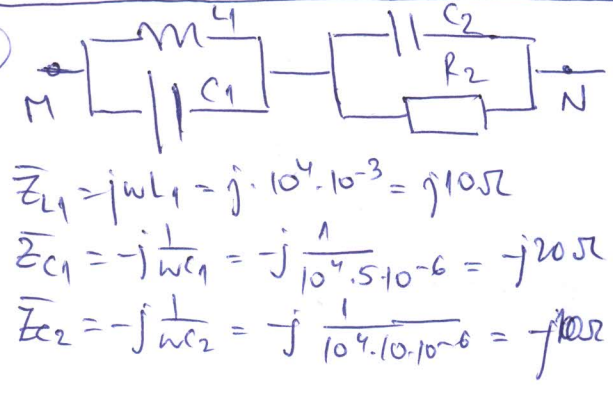 L1 C2
C1 R2
M N
Z̅L1 = jωL1 = j · 10⁴ · 10⁻³ = j10Ω
Z̅C1 = -j 1/ωC1 = -j 1/10⁴·5·10⁻⁶ = -j20Ω
Z̅C2 = -j 1/ωC2 = -j 1/10⁴·10·10⁻⁶ = -j10Ω